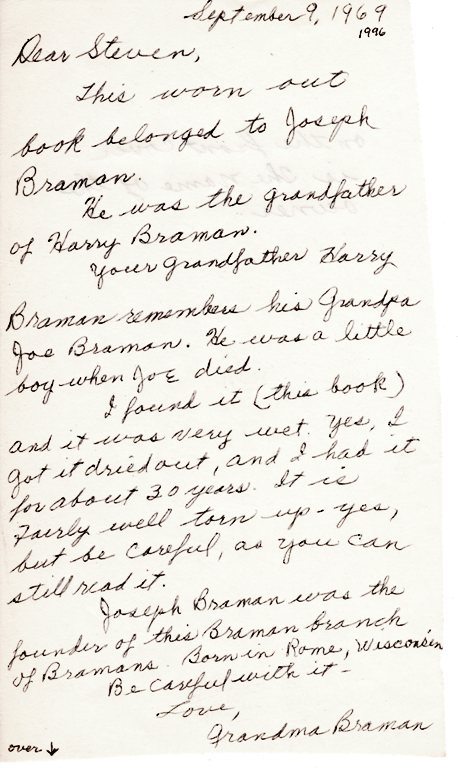 September 9, 1969
1996
Dear Steven,
This worn out
book belonged to Joseph
Braman.
He was the grandfather
of Harry Braman.
Your grandfather Harry
Braman remembers his Grandpa
Joe Braman. He was a little
boy when Joe died.
I found it (this book)
and it was very wet. Yes, I
got it dried out, and I had it
for about 30 years. It is
Fairly well torn up - yes,
but be careful, as you can
still read it.
Joseph Braman was the
founder of this Braman branch
of Bramans. Born in Rome, Wisconsin
Be careful with it -
Love,
Grandma Braman
over ↓